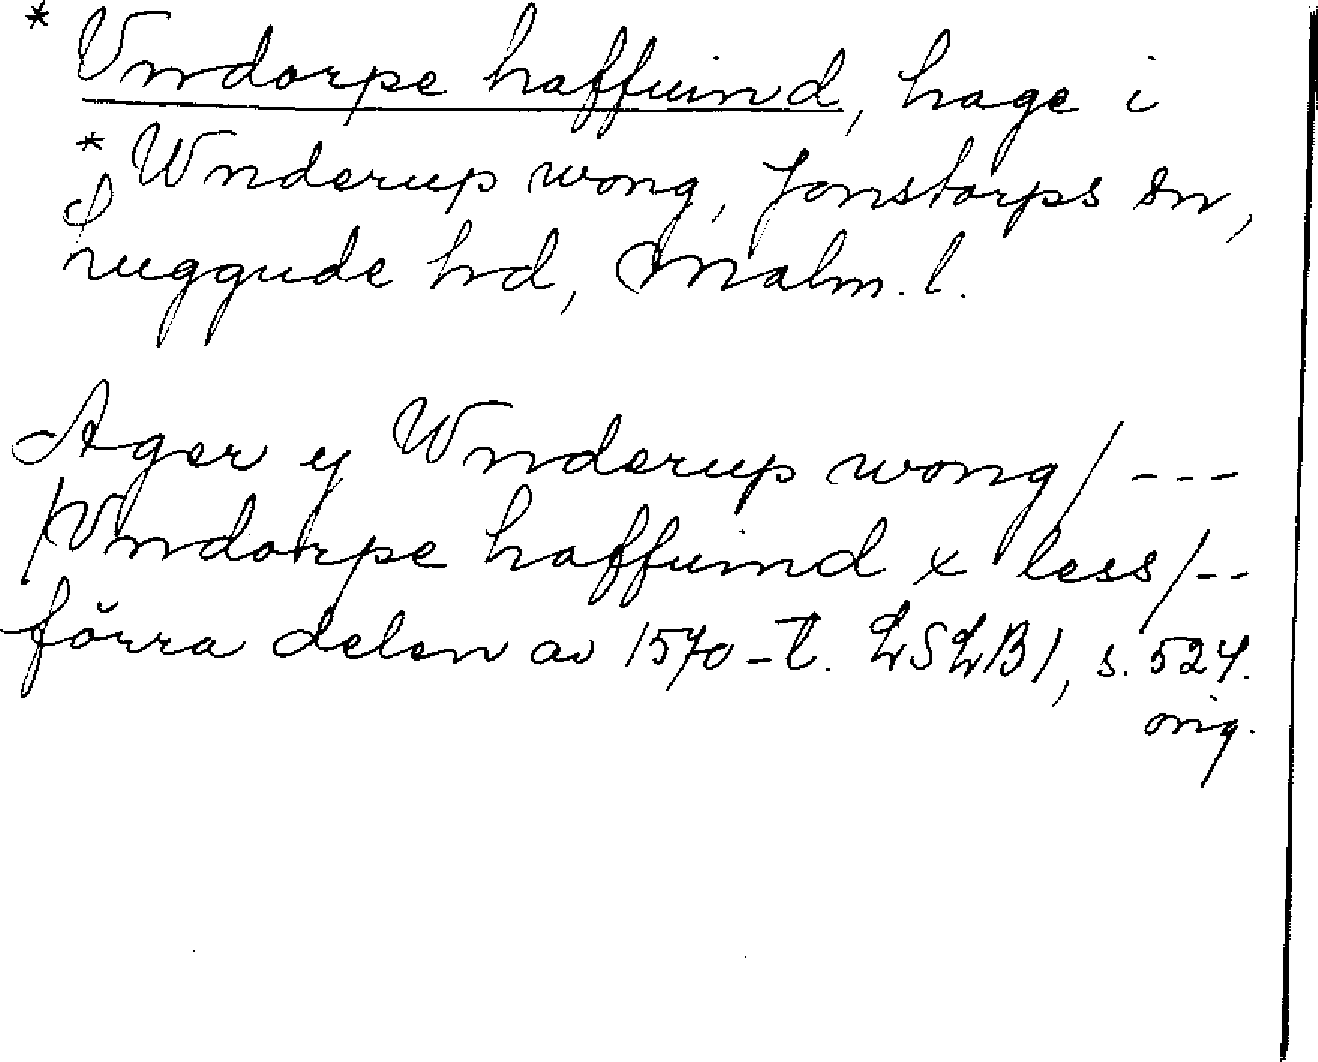 * Vndorpe haffuind, hage i
* Wnderup wong, Jonstorps sn,
Luggude hd, Malm. l.
Ager y Wnderup wong/ ---
/Vndorpe haffuind x less/--
förra delen av 1570-t. LSLB1, s. 524.
orig.